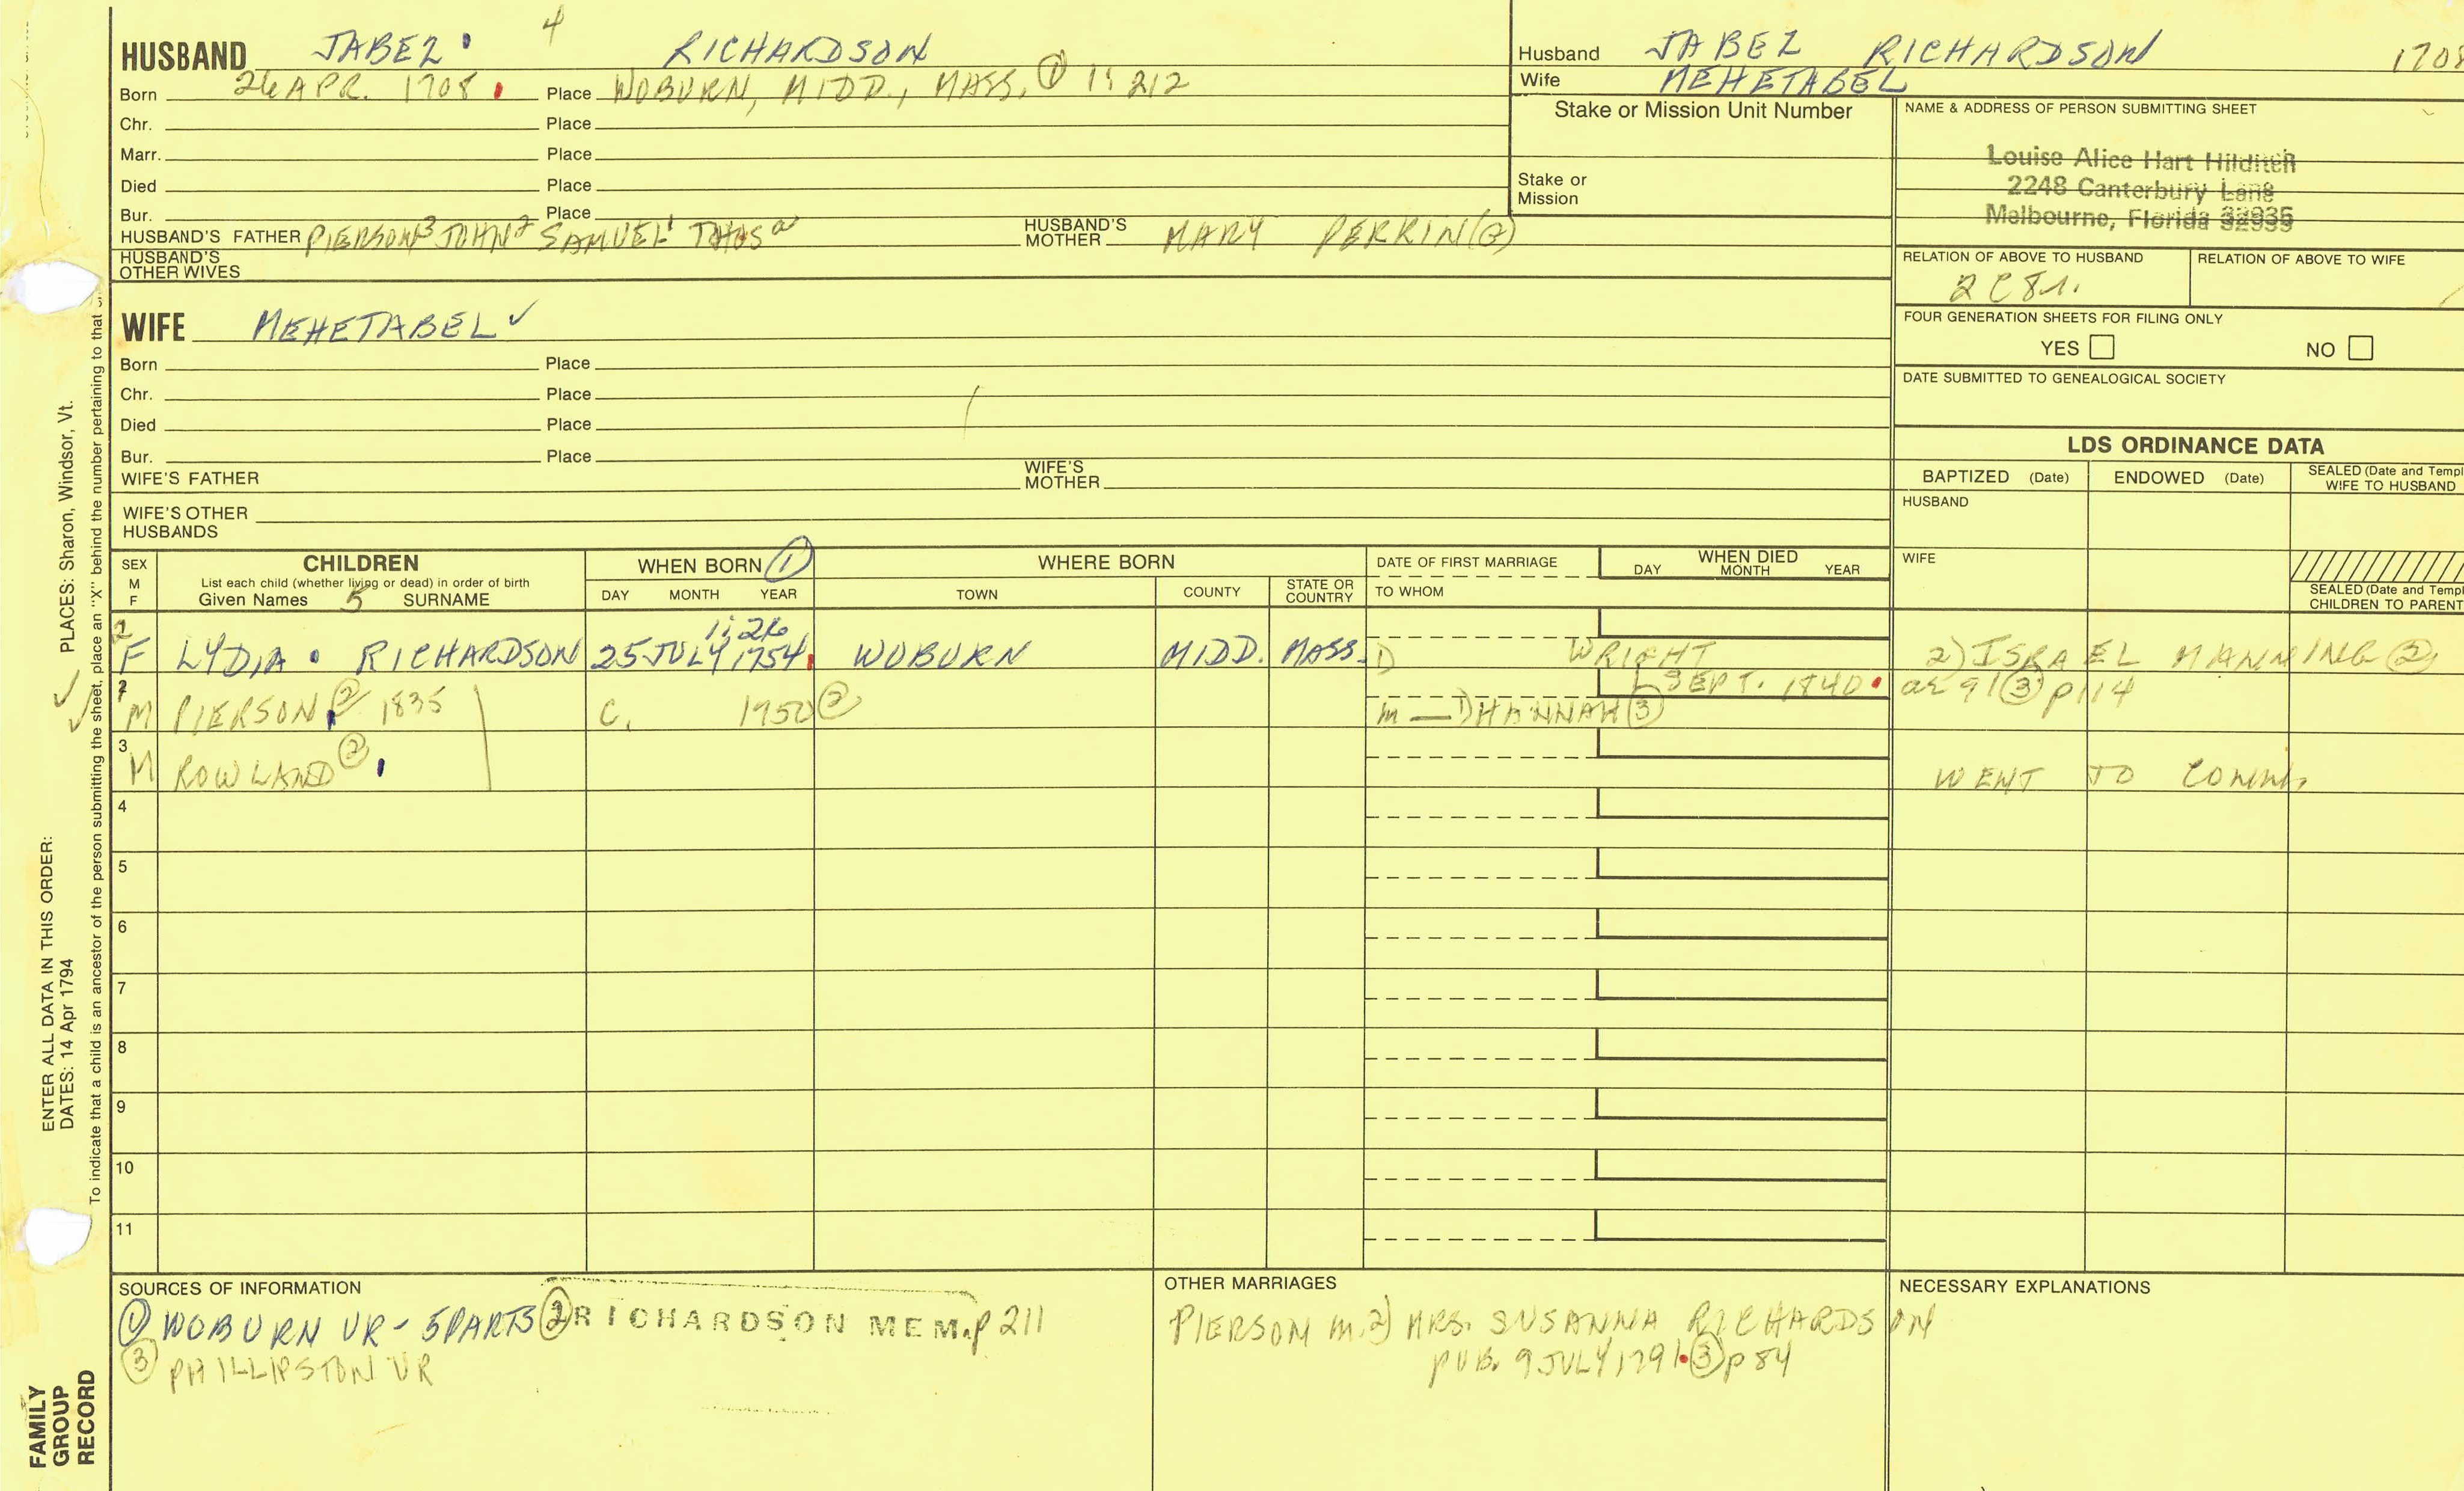 HUSBAND JABEZ 4 RICHARDSON
Born 26 APR. 1708. Place WOBURN, MIDD., MASS. ① 1; 212
Chr. Place
Marr. Place
Died Place
Bur. Place
HUSBAND'S FATHER PIERSON³ JOHN² SAMUEL¹ THOSª HUSBAND'S MOTHER MARY PERRIN (2)
HUSBAND'S OTHER WIVES
WIFE MEHETABEL ✓
Born Place
Chr. Place
Died Place
Bur. Place
WIFE'S FATHER WIFE'S MOTHER
WIFE'S OTHER HUSBANDS
Husband JABEZ RICHARDSON 1708
Wife MEHETABEL
Stake or Mission Unit Number
Stake or Mission
NAME & ADDRESS OF PERSON SUBMITTING SHEET
Louise Alice Hart Hilditch
2248 Canterbury Lane
Melbourne, Florida 32935
RELATION OF ABOVE TO HUSBAND RELATION OF ABOVE TO WIFE
2C8r.
FOUR GENERATION SHEETS FOR FILING ONLY
YES NO
DATE SUBMITTED TO GENEALOGICAL SOCIETY
LDS ORDINANCE DATA
BAPTIZED (Date) ENDOWED (Date) SEALED (Date and Templ
WIFE TO HUSBAND
HUSBAND
WIFE
SEALED (Date and Templ
CHILDREN TO PARENT
SEX M F CHILDREN WHEN BORN ① WHERE BORN DATE OF FIRST MARRIAGE WHEN DIED
List each child (whether living or dead) in order of birth
Given Names 5 SURNAME DAY MONTH YEAR TOWN COUNTY STATE OR COUNTRY TO WHOM DAY MONTH YEAR
1; 216
1 F LYDIA . RICHARDSON 25 JULY 1754. WOBURN MIDD. MASS. 1) WRIGHT 2) ISRAEL MANNING ②
SEPT. 1840. ae 91 ③ p 114
2 M PIERSON ② 1835 C. 1950 ② m — 1) HANNAH ③
3 M ROWLAND ② WENT TO CONN.
4
5
6
7
8
9
10
11
SOURCES OF INFORMATION
① WOBURN VR - 5 PARTS ② RICHARDSON MEM. p 211
③ PHILLIPSTON VR
OTHER MARRIAGES
PIERSON m. 2) MRS. SUSANNA RICHARDSON
PUB. 9 JULY 1791. ③ p 84
NECESSARY EXPLANATIONS
PLACES: Sharon, Windsor, Vt.
ENTER ALL DATA IN THIS ORDER:
DATES: 14 Apr 1794
To indicate that a child is an ancestor of the person submitting the sheet, place an "X" behind the number pertaining to that
FAMILY
GROUP
RECORD